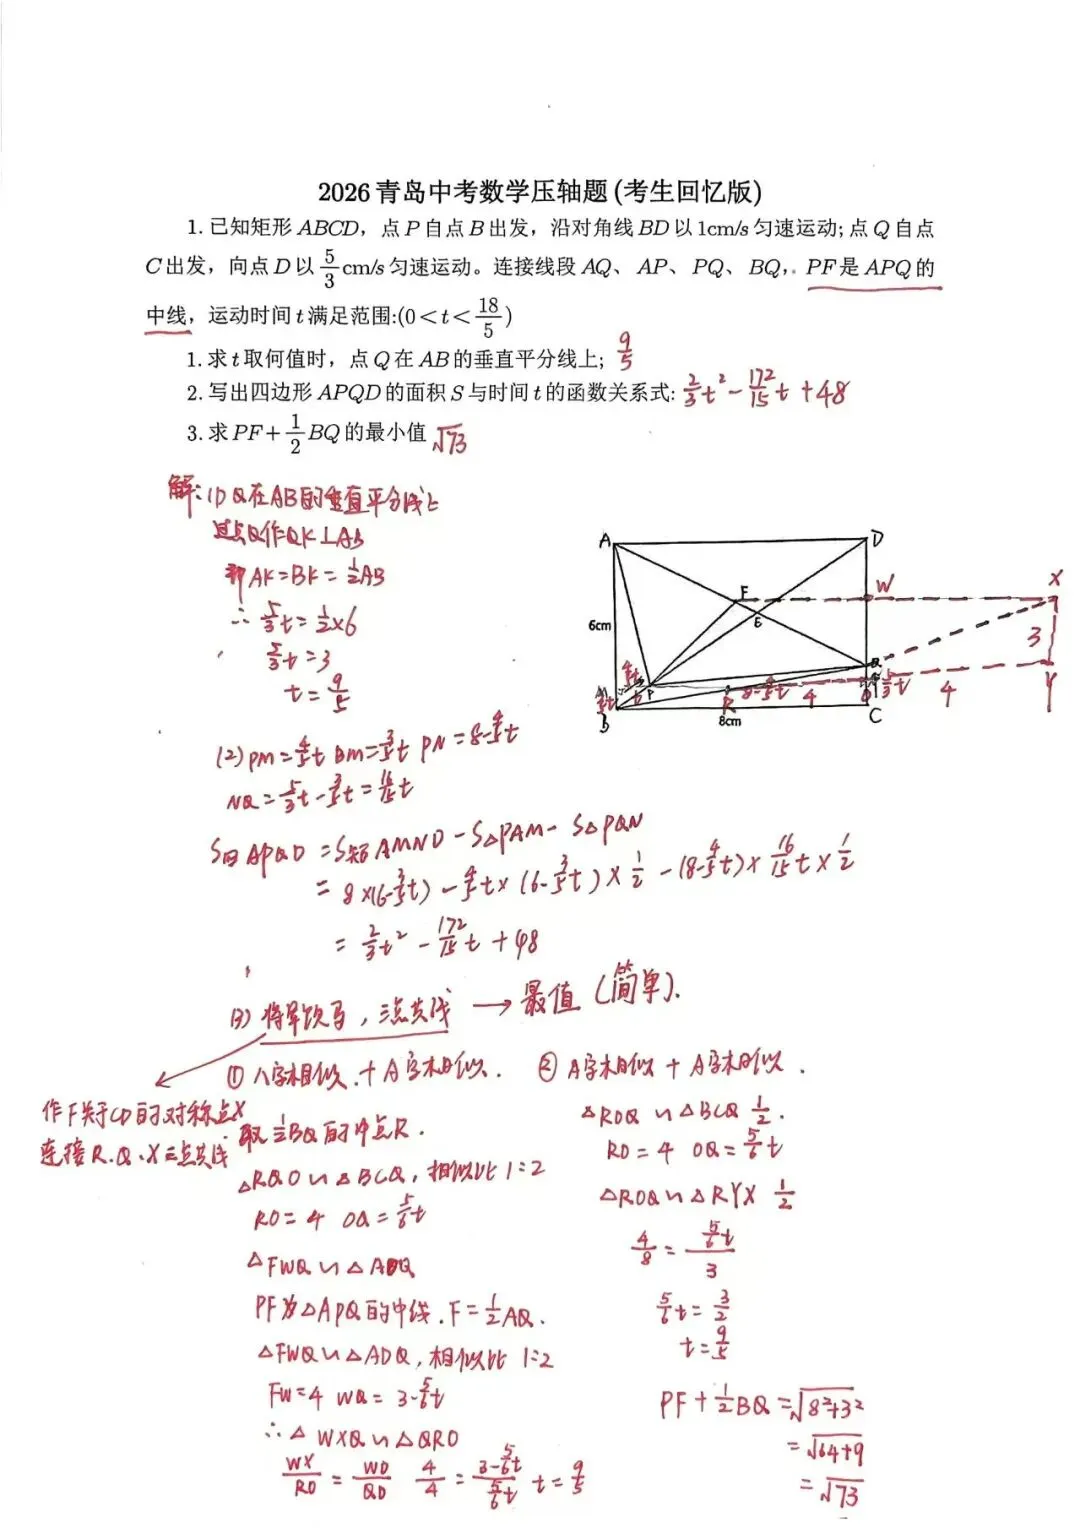 2026青岛中考数学压轴题(考生回忆版)
1. 已知矩形ABCD，点P自点B出发，沿对角线BD以1cm/s匀速运动;点Q自点
C出发，向点D以5/3cm/s匀速运动。连接线段AQ、AP、PQ、BQ,. PF是APQ的
中线，运动时间t满足范围:(0<t<18/5)
1. 求t取何值时，点Q在AB的垂直平分线上; 9/5
2. 写出四边形APQD的面积S与时间t的函数关系式: 2/3t²-172/15t+48
3. 求PF+1/2BQ的最小值 √73
解: (1) Q在AB的垂直平分线上
过点Q作QK⊥AB
即AK=BK=1/2AB
∴ 5/3t=1/2×6
5/3t=3
t=9/5
A
D
F
W
X
E
6cm
3
P
Q
R
8-4/5t
4
5/3t
4
Y
B
8cm
C
(2) PM=4/5t BM=3/5t PN=8-4/5t
NQ=5/3t-3/5t=16/15t
S四APQD=S矩AMND-S△PAM-S△PQN
=8×(6-3/5t)-4/5t×(6-3/5t)×1/2-(8-4/5t)×16/15t×1/2
=2/3t²-172/15t+48
(3) 将军饮马，三点共线→最值(简单).
作F关于CD的对称点X
连接R.Q.X三点共线
① 八字相似.+A字相似.
取1/2BQ的中点R.
△RQO∽△BCQ，相似比1:2
RO=4 OQ=5/6t
△FWQ∽△ADQ
PF为△APQ的中线.F=1/2AQ.
△FWQ∽△ADQ，相似比1:2
FW=4 WQ=3-5/6t
∴△WXQ∽△QRO
WX/RO=WQ/QO 4/4=(3-5/6t)/(5/6t) t=9/5
② A字相似+A字相似.
△ROQ∽△BCQ 1/2.
RO=4 OQ=5/6t
△ROQ∽△RYX 1/2
4/8=(5/6t)/3
5/6t=3/2
t=9/5
PF+1/2BQ=√8²+3²
=√64+9
=√73